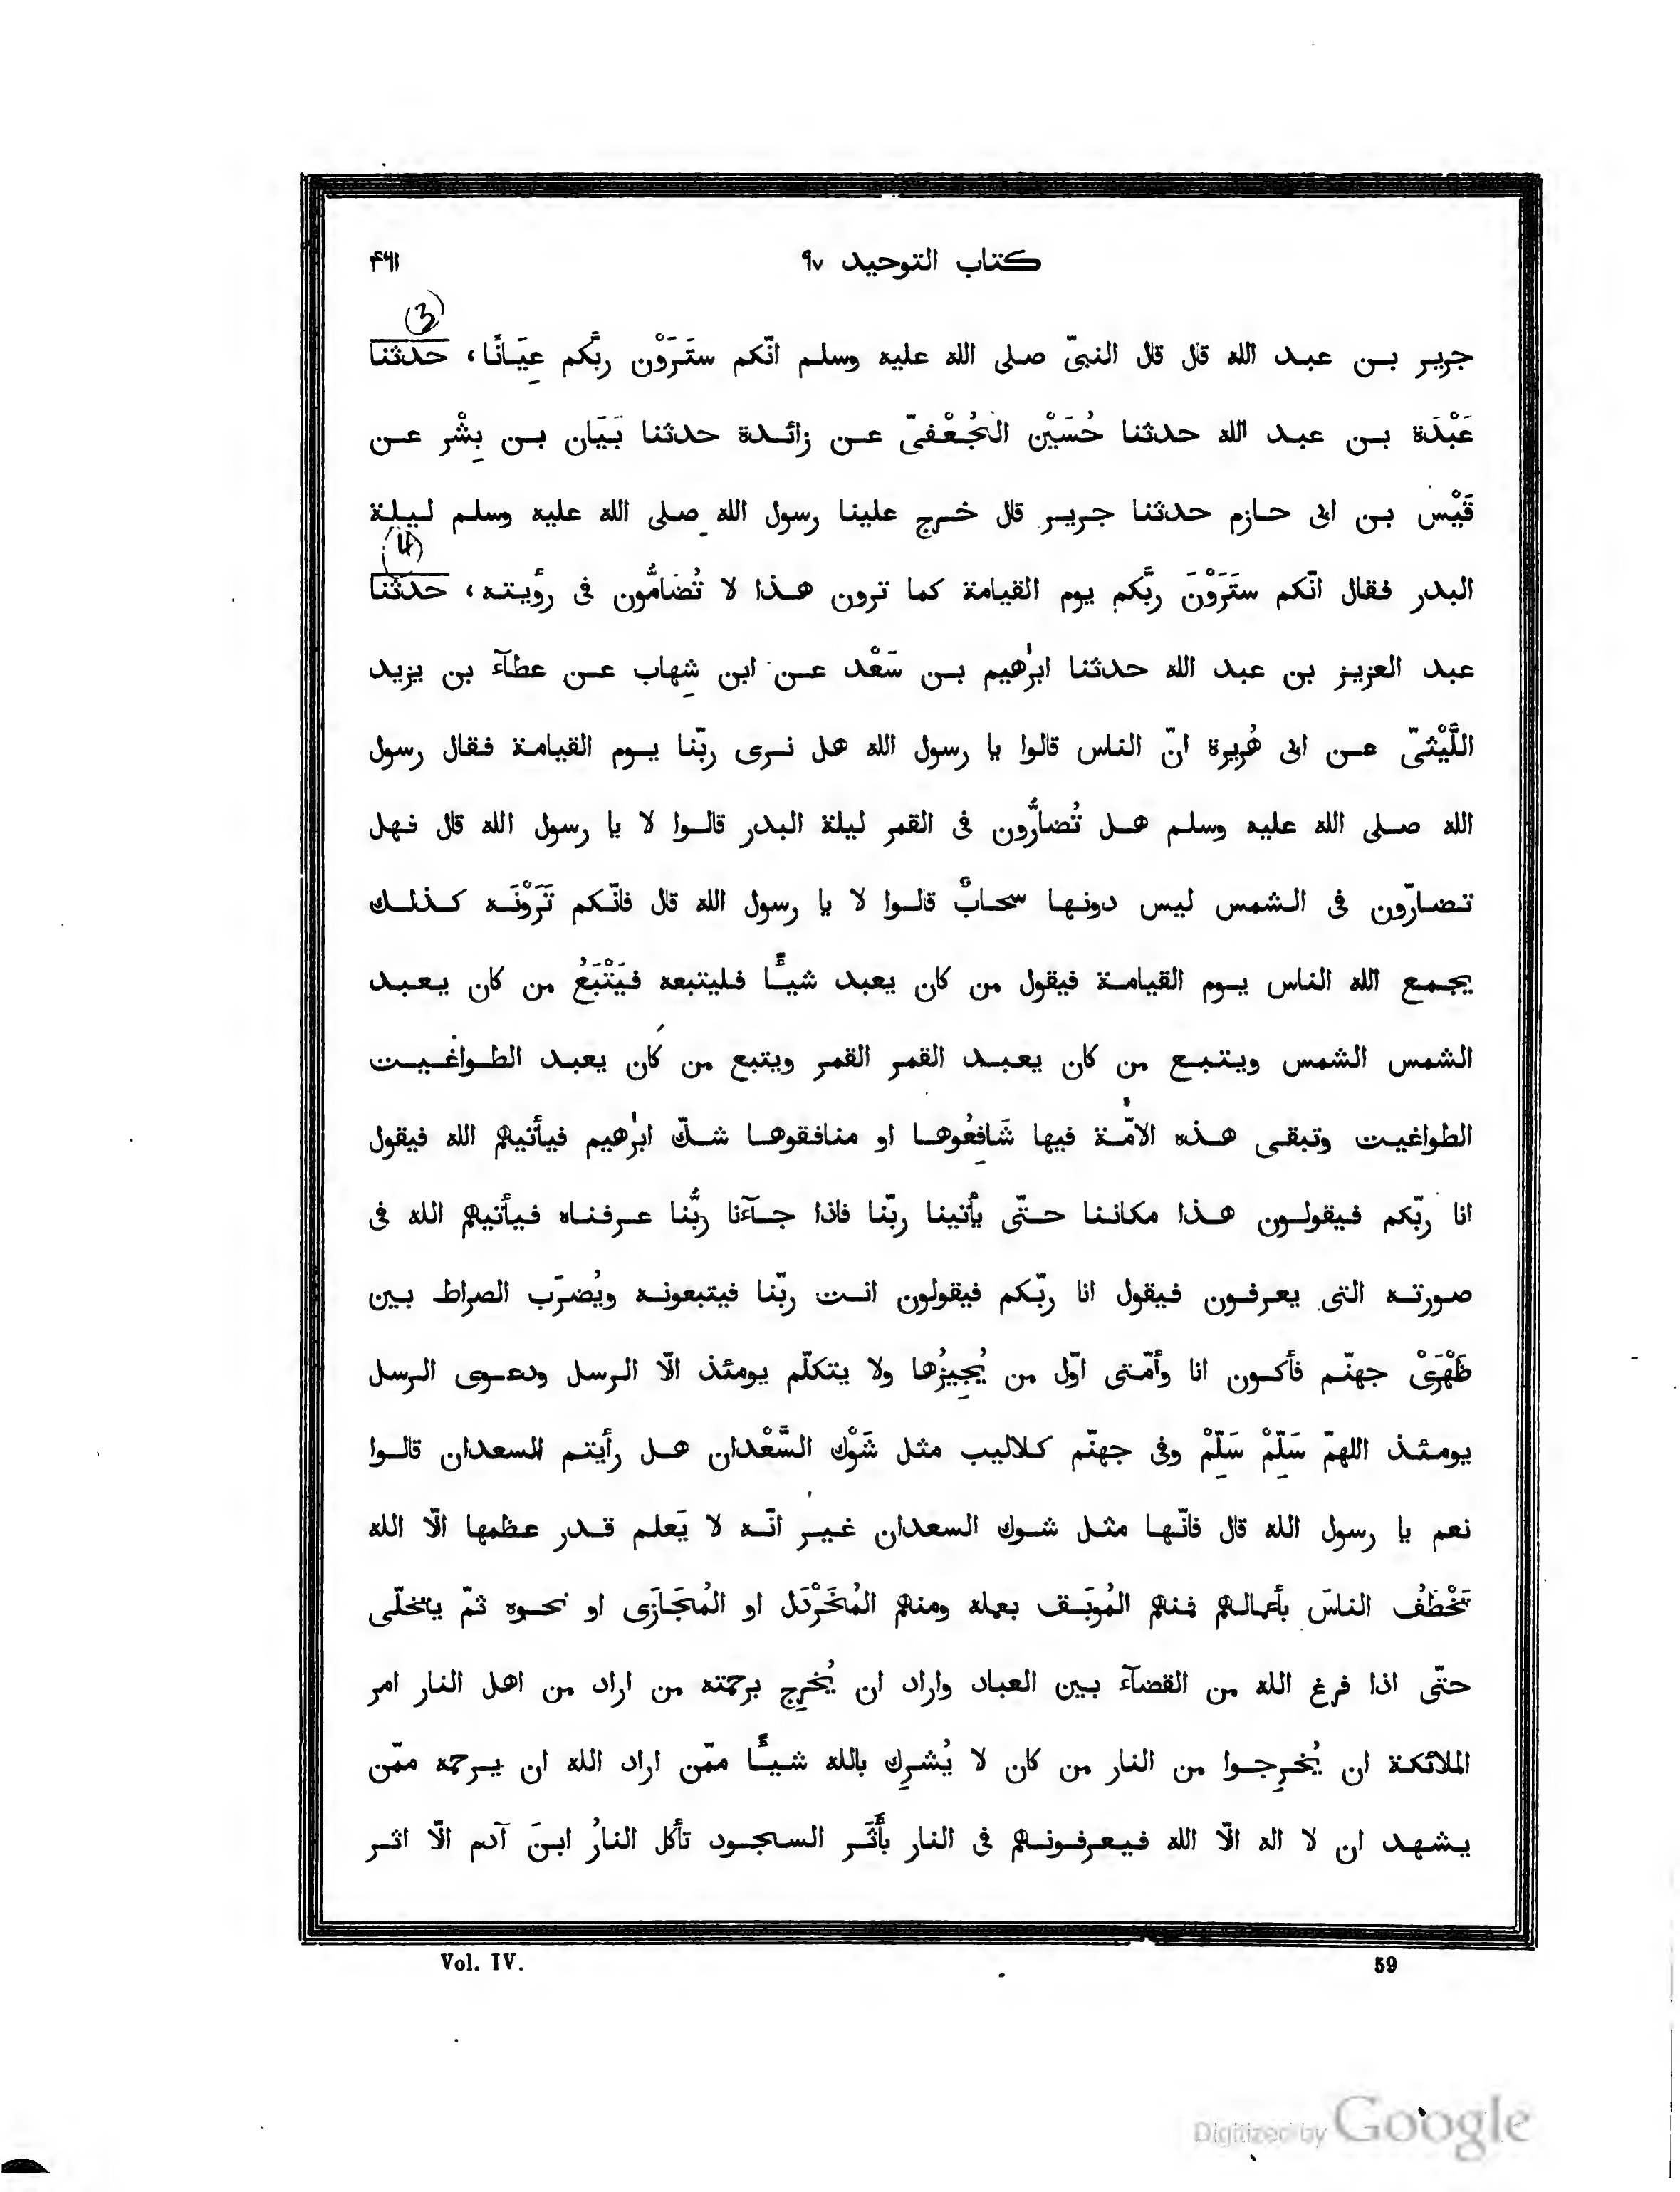 كتاب التوحيد ٩٧ ۴٦١
(3)
جرير بن عبد الله قال قال النبىّ صلى الله عليه وسلم انّكم ستَرَوْن ربَّكم عِيَانًا، حدثنا
عَبْدَة بن عبد الله حدثنا حُسَيْن الجُعْفىّ عن زائدة حدثنا بَيَان بن بِشْر عن
قَيْس بن ابى حازم حدثنا جرير قال خرج علينا رسول الله صلى الله عليه وسلم ليلة
(4)
البدر فقال انّكم ستَرَوْنَ ربَّكم يوم القيامة كما ترون هذا لا تُضامُّون فى رؤيته، حدثنا
عبد العزيز بن عبد الله حدثنا ابرٰهيم بن سَعْد عن ابن شِهاب عن عطآء بن يزيد
اللَّيْثىّ عن ابى هُريرة انّ الناس قالوا يا رسول الله هل نرى ربّنا يوم القيامة فقال رسول
الله صلى الله عليه وسلم هل تُضارُّون فى القمر ليلة البدر قالوا لا يا رسول الله قال فهل
تضارّون فى الشمس ليس دونها سحابٌ قالوا لا يا رسول الله قال فانّكم تَرَوْنَه كذلك
يجمع الله الناس يوم القيامة فيقول من كان يعبد شيـًٔا فليتبعه فيَتْبَعُ من كان يعبد
الشمس الشمس ويتبع من كان يعبد القمر القمر ويتبع من كان يعبد الطواغيت
الطواغيت وتبقى هذه الامّة فيها شَافِعُوها او منافقوها شكّ ابرٰهيم فيأتيهم الله فيقول
انا ربّكم فيقولون هذا مكاننا حتّى يأتينا ربّنا فاذا جآءنا ربُّنا عرفناه فيأتيهم الله فى
صورته التى يعرفون فيقول انا ربّكم فيقولون انت ربّنا فيتبعونه ويُضرَب الصراط بين
ظَهْرَىْ جهنّم فأكون انا وأمّتى اوّل من يُجِيزُها ولا يتكلّم يومئذ الّا الرسل ودعوى الرسل
يومئذ اللهمّ سَلِّمْ سَلِّمْ وفى جهنّم كلاليب مثل شَوْك السَّعْدان هل رأيتم السعدان قالوا
نعم يا رسول الله قال فانّها مثل شوك السعدان غير انّه لا يَعلم قدر عظمها الّا الله
تَخْطَفُ الناسَ بأعمالهم فمنهم المُوبَق بعمله ومنهم المُخَرْدَل او المُجَازَى او نحوه ثمّ يتجلّى
حتّى اذا فرغ الله من القضآء بين العباد واراد ان يُخرِج برحمته من اراد من اهل النار امر
الملائكة ان يُخرِجوا من النار من كان لا يُشرِك بالله شيـًٔا ممّن اراد الله ان يرحمه ممّن
يشهد ان لا اله الّا الله فيعرفونهم فى النار بأَثَر السجود تأكل النارُ ابنَ آدم الّا اثر
Vol. IV. 59
Digitized by Google